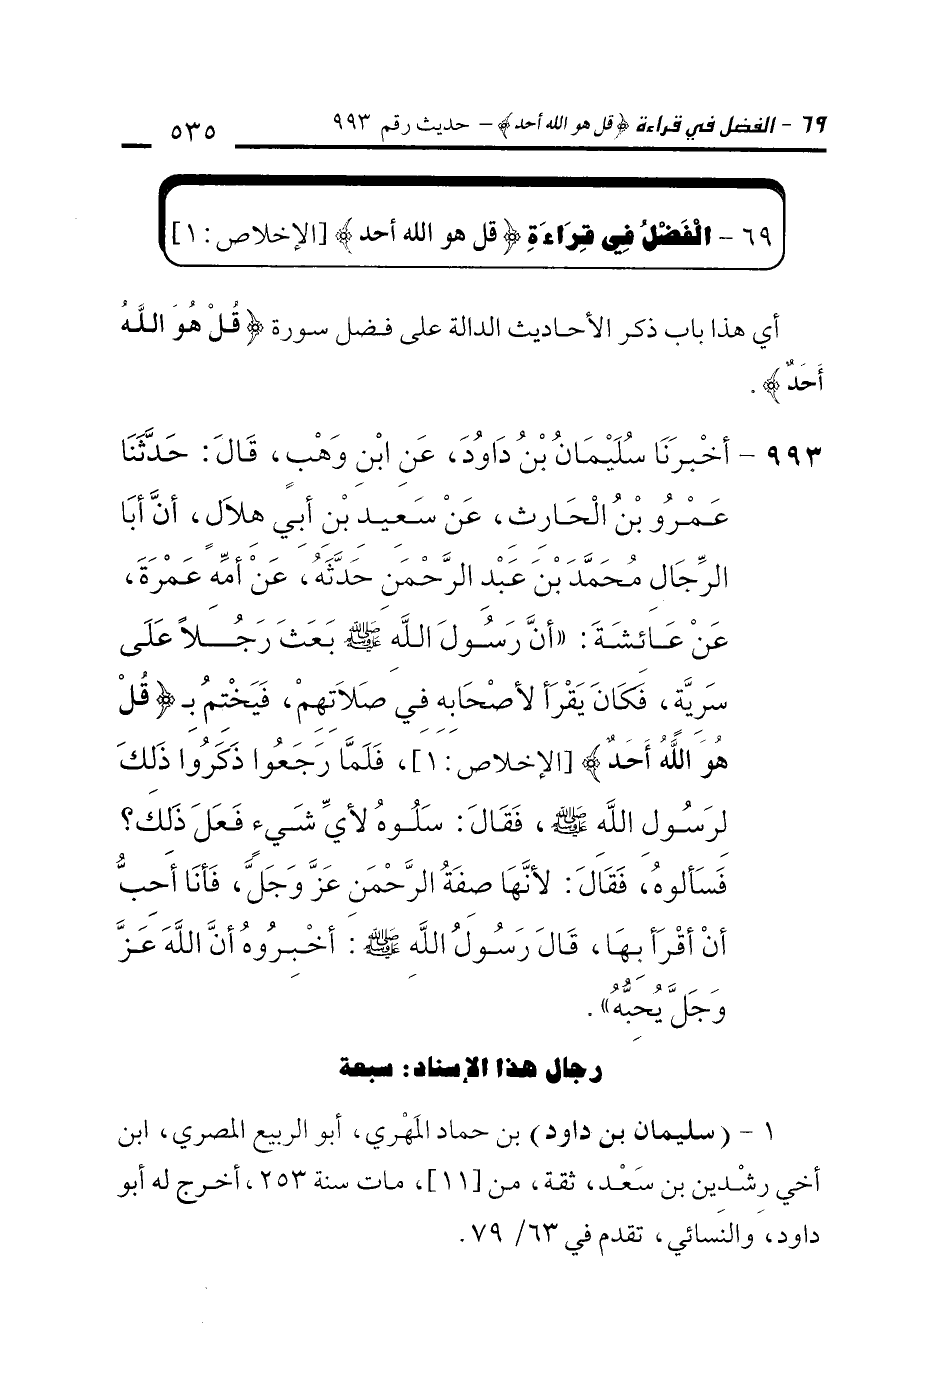 ٦٩ - الفضل في قراءة ﴿قل هو الله أحد﴾ - حديث رقم ٩٩٣
٥٣٥
٦٩ - الْفَضْلُ فِي قِرَاءَةِ ﴿قل هو الله أحد﴾ [الإخلاص: ١]
أي هذا باب ذكر الأحاديث الدالة على فضل سورة ﴿قُلْ هُوَ اللَّهُ
أَحَدٌ﴾.
٩٩٣ - أَخْبَرَنَا سُلَيْمَانُ بْنُ دَاوُدَ، عَنِ ابْنِ وَهْبٍ، قَالَ: حَدَّثَنَا
عَمْرُو بْنُ الْحَارِثِ، عَنْ سَعِيدِ بْنِ أَبِي هِلَالٍ، أَنَّ أَبَا
الرِّجَالِ مُحَمَّدَ بْنَ عَبْدِ الرَّحْمَنِ حَدَّثَهُ، عَنْ أُمِّهِ عَمْرَةَ،
عَنْ عَائِشَةَ: «أَنَّ رَسُولَ اللَّهِ ﷺ بَعَثَ رَجُلاً عَلَى
سَرِيَّةٍ، فَكَانَ يَقْرَأُ لأَصْحَابِهِ فِي صَلَاتِهِمْ، فَيَخْتِمُ بِـ ﴿قُلْ
هُوَ اللَّهُ أَحَدٌ﴾ [الإخلاص: ١]، فَلَمَّا رَجَعُوا ذَكَرُوا ذَلِكَ
لِرَسُولِ اللَّهِ ﷺ، فَقَالَ: سَلُوهُ لأَيِّ شَيْءٍ فَعَلَ ذَلِكَ؟
فَسَأَلُوهُ، فَقَالَ: لأَنَّهَا صِفَةُ الرَّحْمَنِ عَزَّ وَجَلَّ، فَأَنَا أُحِبُّ
أَنْ أَقْرَأَ بِهَا، قَالَ رَسُولُ اللَّهِ ﷺ: أَخْبِرُوهُ أَنَّ اللَّهَ عَزَّ
وَجَلَّ يُحِبُّهُ».
رجال هذا الإسناد: سبعة
١ - (سليمان بن داود) بن حماد المَهْري، أبو الربيع المصري، ابن
أخي رشْدين بن سَعْد، ثقة، من [١١]، مات سنة ٢٥٣، أخرج له أبو
داود، والنسائي، تقدم في ٦٣/ ٧٩.